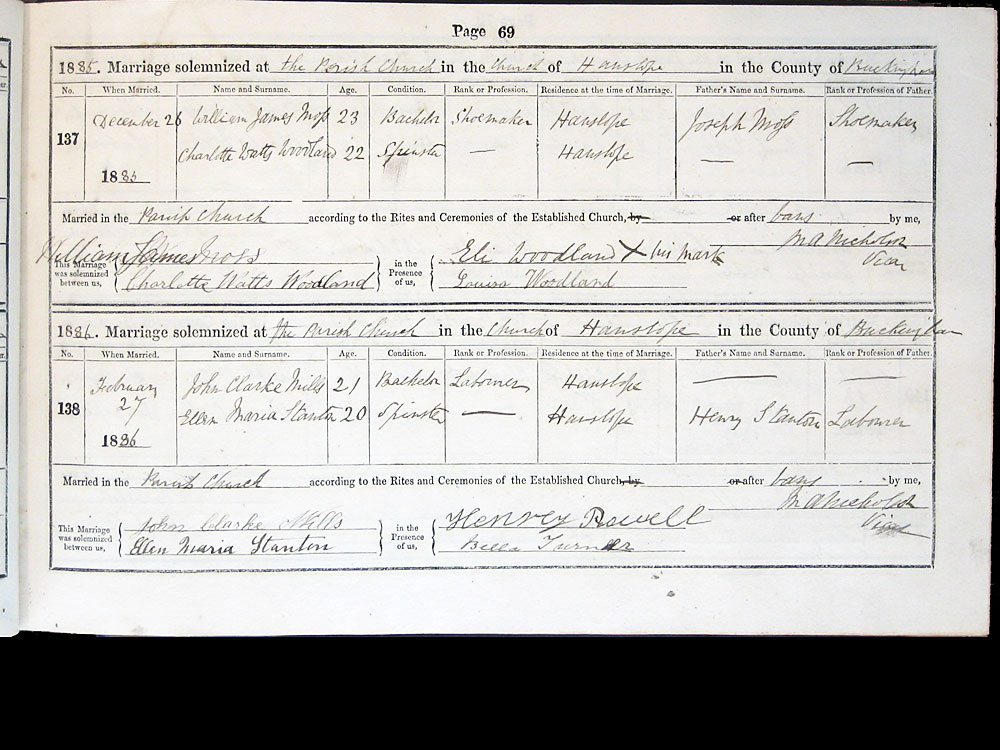 Page 69
1885. Marriage solemnized at the Parish Church in the Church of Hanslope in the County of Buckingham
No. When Married. Name and Surname. Age. Condition. Rank or Profession. Residence at the time of Marriage. Father's Name and Surname. Rank or Profession of Father.
137 December 26 William James Moss 23 Bachelor Shoemaker Hanslope Joseph Moss Shoemaker
Charlotte Watts Woodland 22 Spinster — Hanslope — —
1885
Married in the Parish Church according to the Rites and Ceremonies of the Established Church, by or after bans by me,
M A Nicholson
Vicar
This Marriage was solemnized between us, William James Moss in the Presence of us, Eli Woodland X his mark
Charlotte Watts Woodland Louisa Woodland
1886. Marriage solemnized at the Parish Church in the Church of Hanslope in the County of Buckingham
No. When Married. Name and Surname. Age. Condition. Rank or Profession. Residence at the time of Marriage. Father's Name and Surname. Rank or Profession of Father.
138 February 27 John Clarke Mills 21 Bachelor Labourer Hanslope — —
Ellen Maria Stanton 20 Spinster — Hanslope Henry Stanton Labourer
1886
Married in the Parish Church according to the Rites and Ceremonies of the Established Church, by or after bans by me,
M A Nicholson
Vicar
This Marriage was solemnized between us, John Clarke Mills in the Presence of us, Henrey Powell
Ellen Maria Stanton Bella Turner